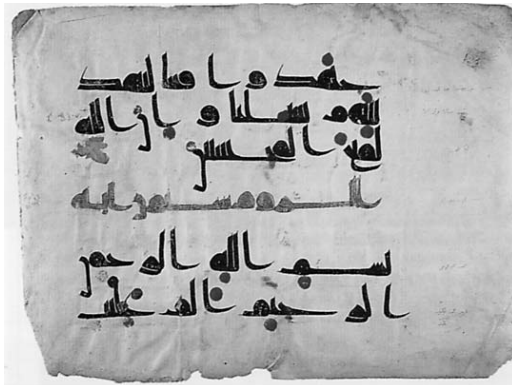 جهدوا فينا لنهد
ينهم سبلنا و ان الله
لمع المحسنين
ستون ايه
بسم الله الرحمن
الرحيم الم غلبت